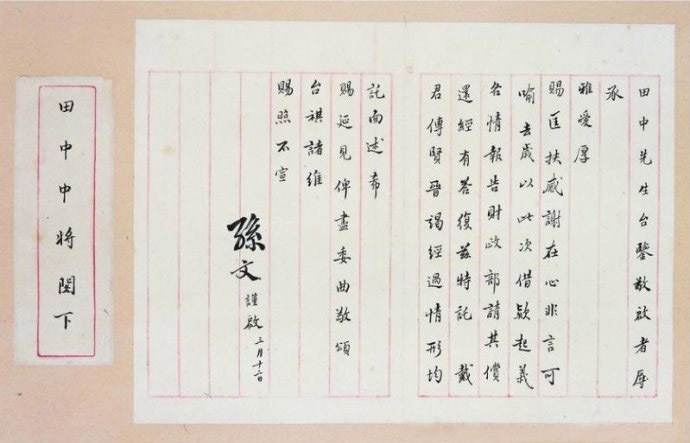 田中先生台鑒敬啟者屢
承
雅愛厚
賜匡扶感謝在心非言可
喻去歲以此次借款起義
各情報告財政部請其償
還經有答復茲特託 戴
君傳賢晉謁經過情形均
託面述希
賜延見俾盡委曲敬頌
台祺諸維
賜照不宣
孫文 謹啟 三月十二日
田中中將閣下